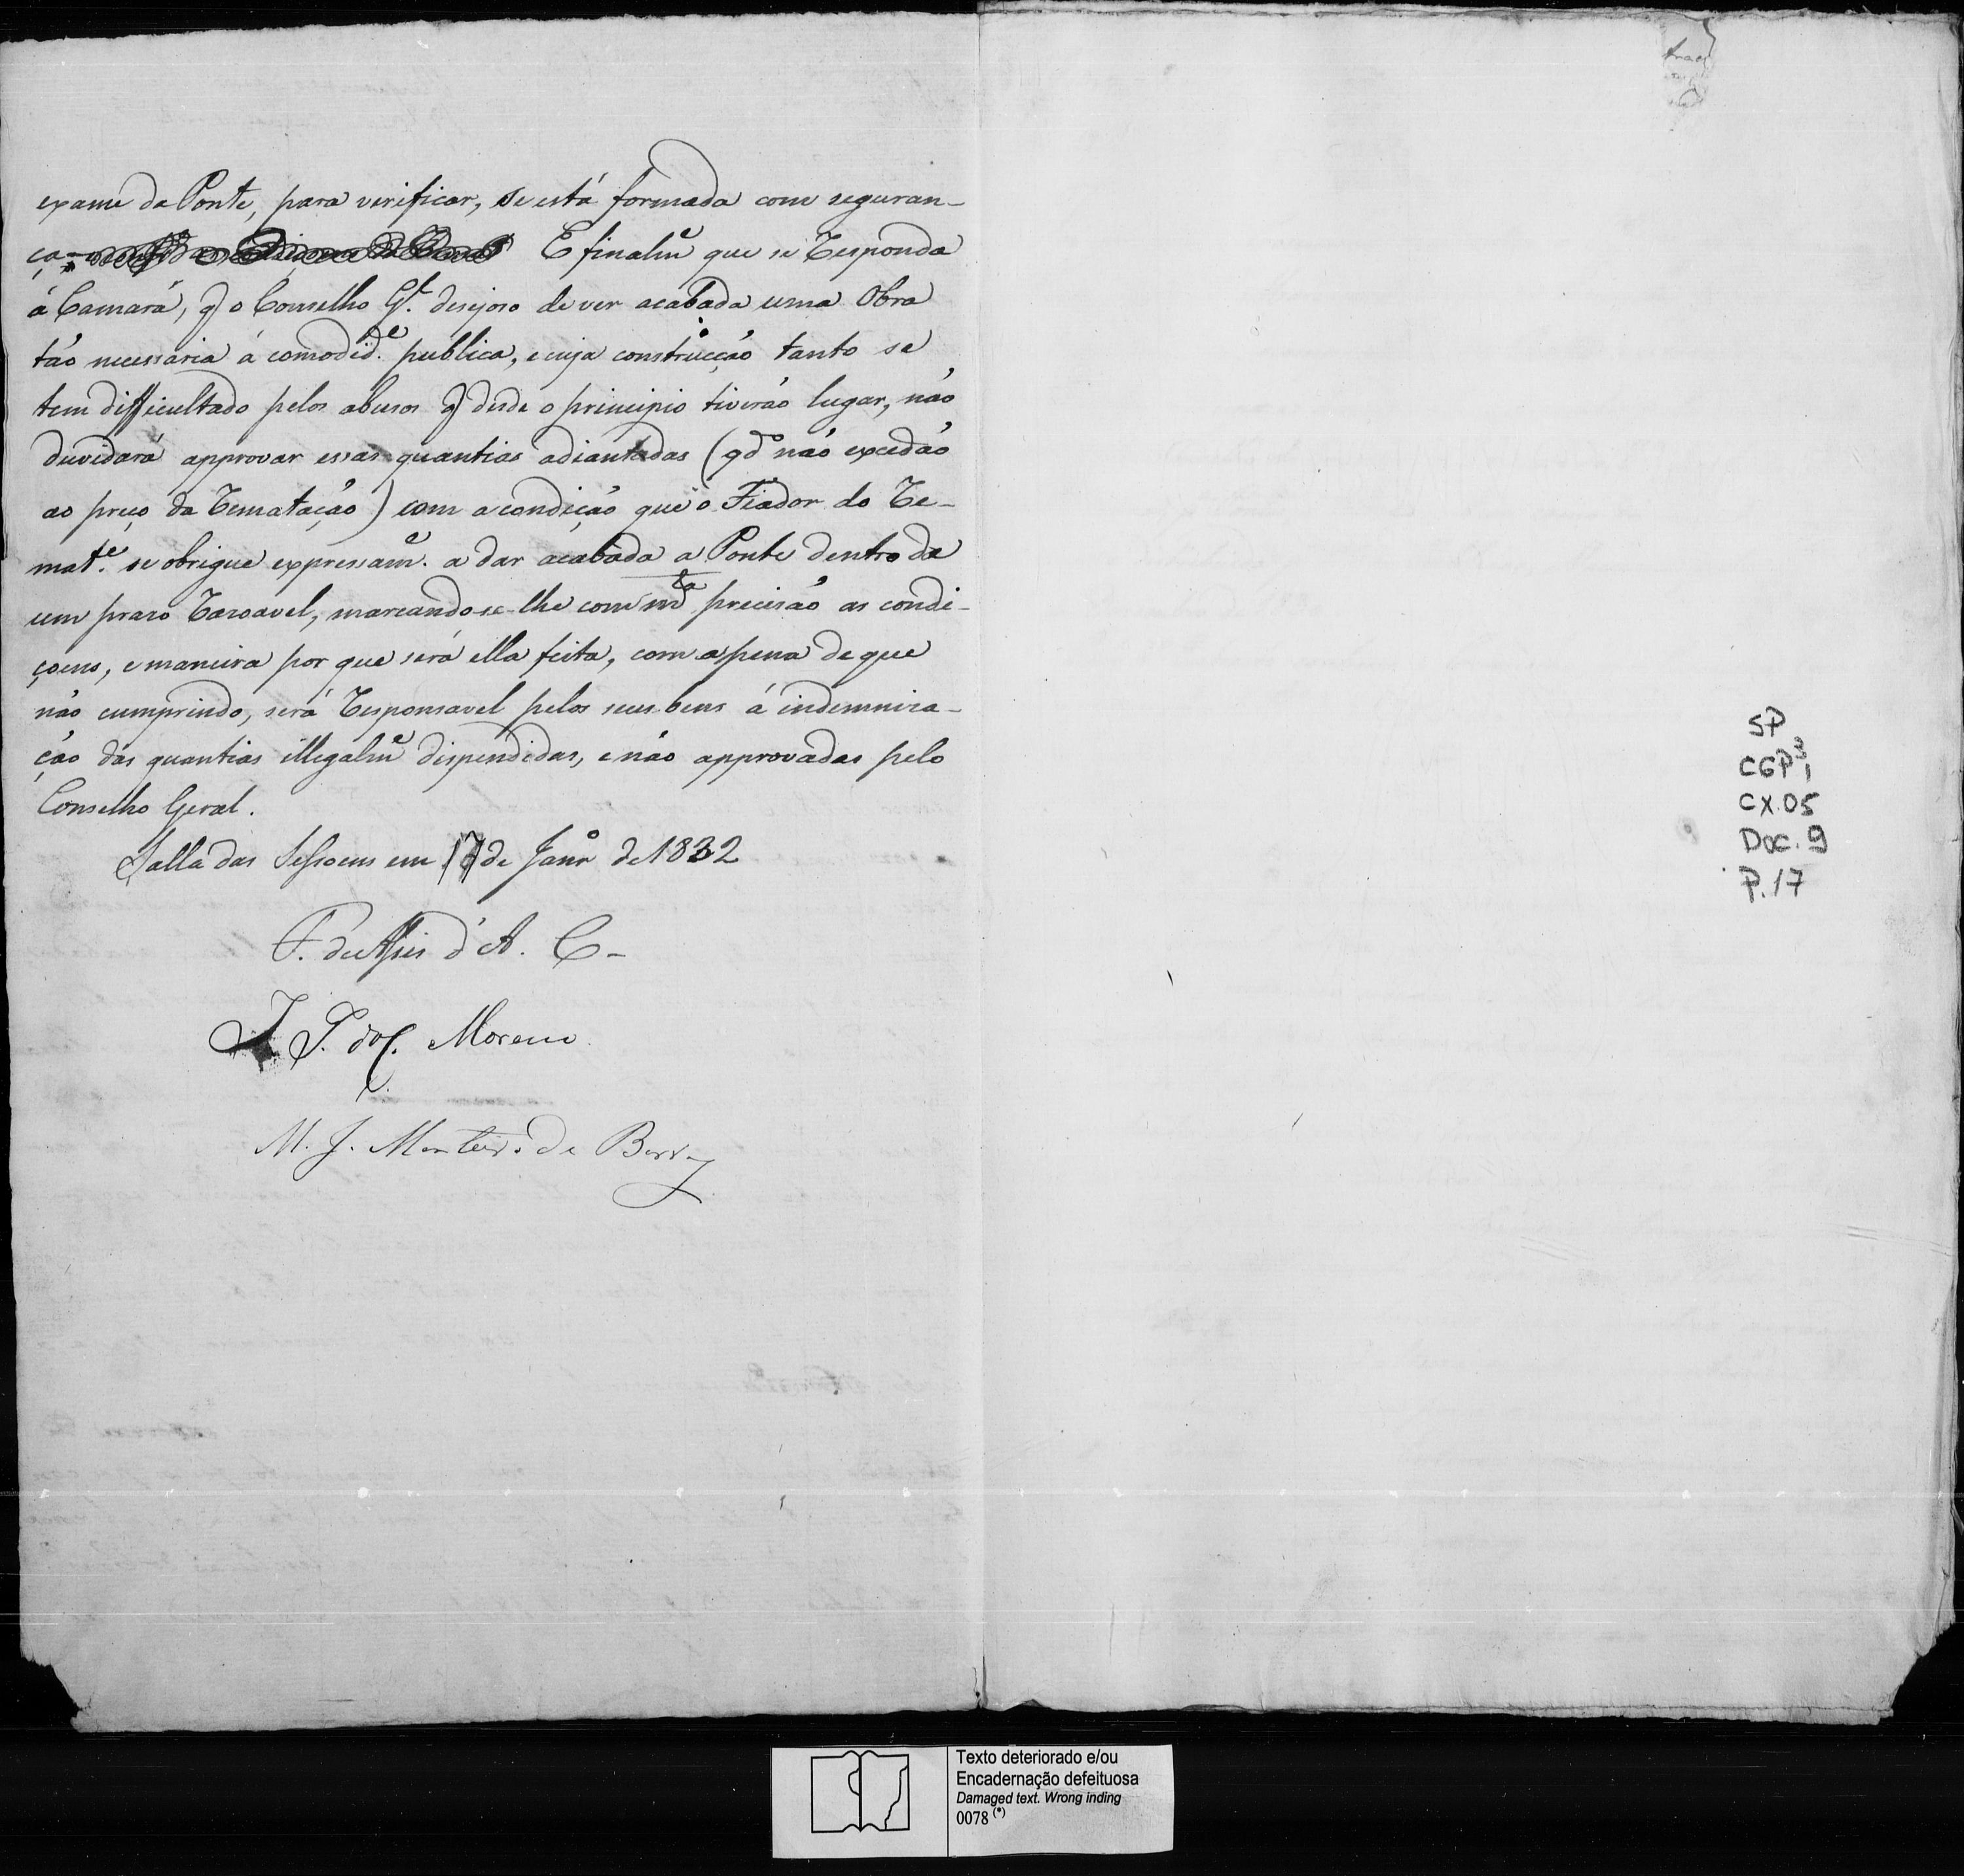 exame da Ponte, para verificar, se está formada com seguran-
ça E finalmᵉ que se responda
á Camará, q o Conselho Gˡ. desejoso de ver acabada uma Obra
tão necessaria á comodidᵉ. publica, e cuja construcção tanto se
tem difficultado pelos abusos q desde o principio tiverão lugar, não
duvidará approvar essas quantias adiantadas (qdº não excedão
ao preço da rematação) com a condição que o Fiador do re-
matᵉ. se obrigue expressamᵉ. a dar acabada a Ponte dentro de
um praso rasoavel, marcando-se-lhe com mᵗᵃ precisão as condi-
çoens, e maneira por que será ella feita, com a pena de que
não cumprindo, será responsavel pelos seus bens á indemniza-
ção das quantias illegalmᵉ dispendidas, e não approvadas pelo
Conselho Geral.
Salla das Sessoens em 17 de Janrº de 1832
F. de Assis d'A. C-
J. P. do C. Moreno
M. J. Monteiro de Barros
SP
CGP3,
CX.05
Doc. 9
P.17
Texto deteriorado e/ou
Encadernação defeituosa
Damaged text. Wrong inding
0078 (*)